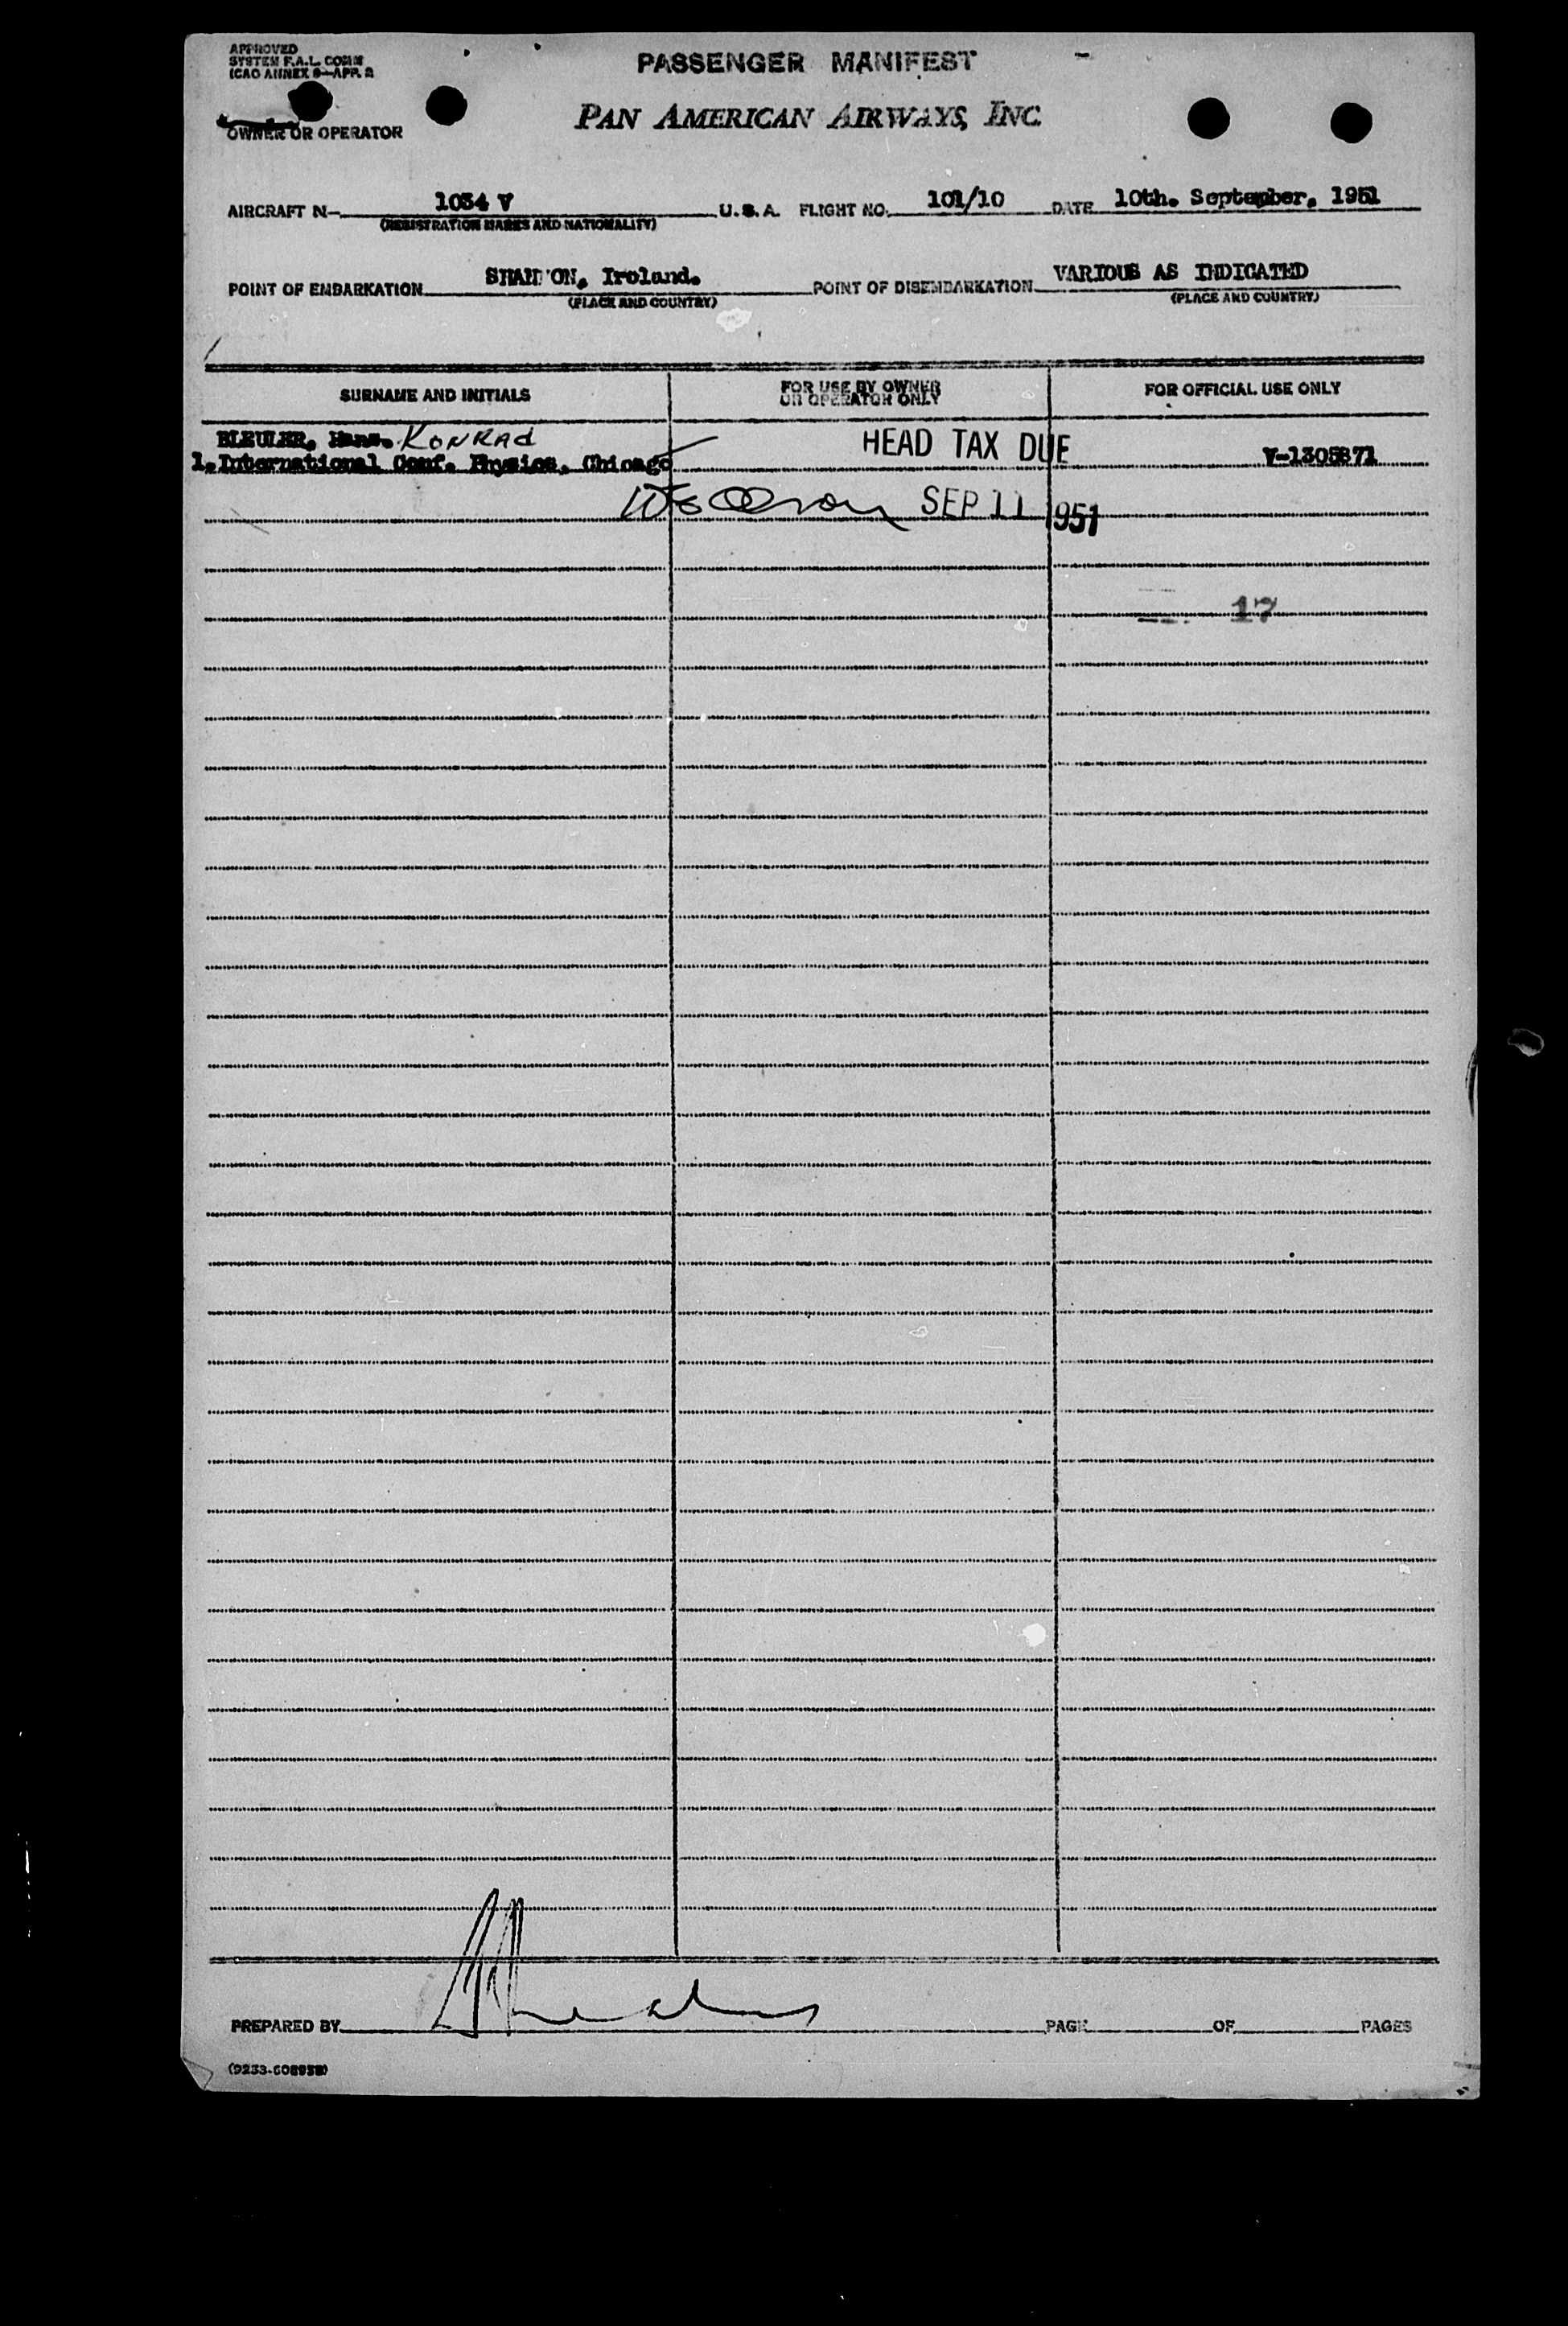 APPROVED
SYSTEM F.A.L. COMM
ICAO ANNEX 9—APP. 2
PASSENGER MANIFEST
PAN AMERICAN AIRWAYS, INC.
OWNER OR OPERATOR
AIRCRAFT N— 1034 V U.S.A. FLIGHT NO. 101/10 DATE 10th. September, 1951
(REGISTRATION MARKS AND NATIONALITY)
POINT OF EMBARKATION SHANNON, Ireland. POINT OF DISEMBARKATION VARIOUS AS INDICATED
(PLACE AND COUNTRY) (PLACE AND COUNTRY)
SURNAME AND INITIALS FOR USE BY OWNER OR OPERATOR ONLY FOR OFFICIAL USE ONLY
BLEULER, Hans. KONRAD
1. International Conf. Physics, Chicago HEAD TAX DUE V-1305871
SEP 11 1951
17
PREPARED BY PAGE OF PAGES